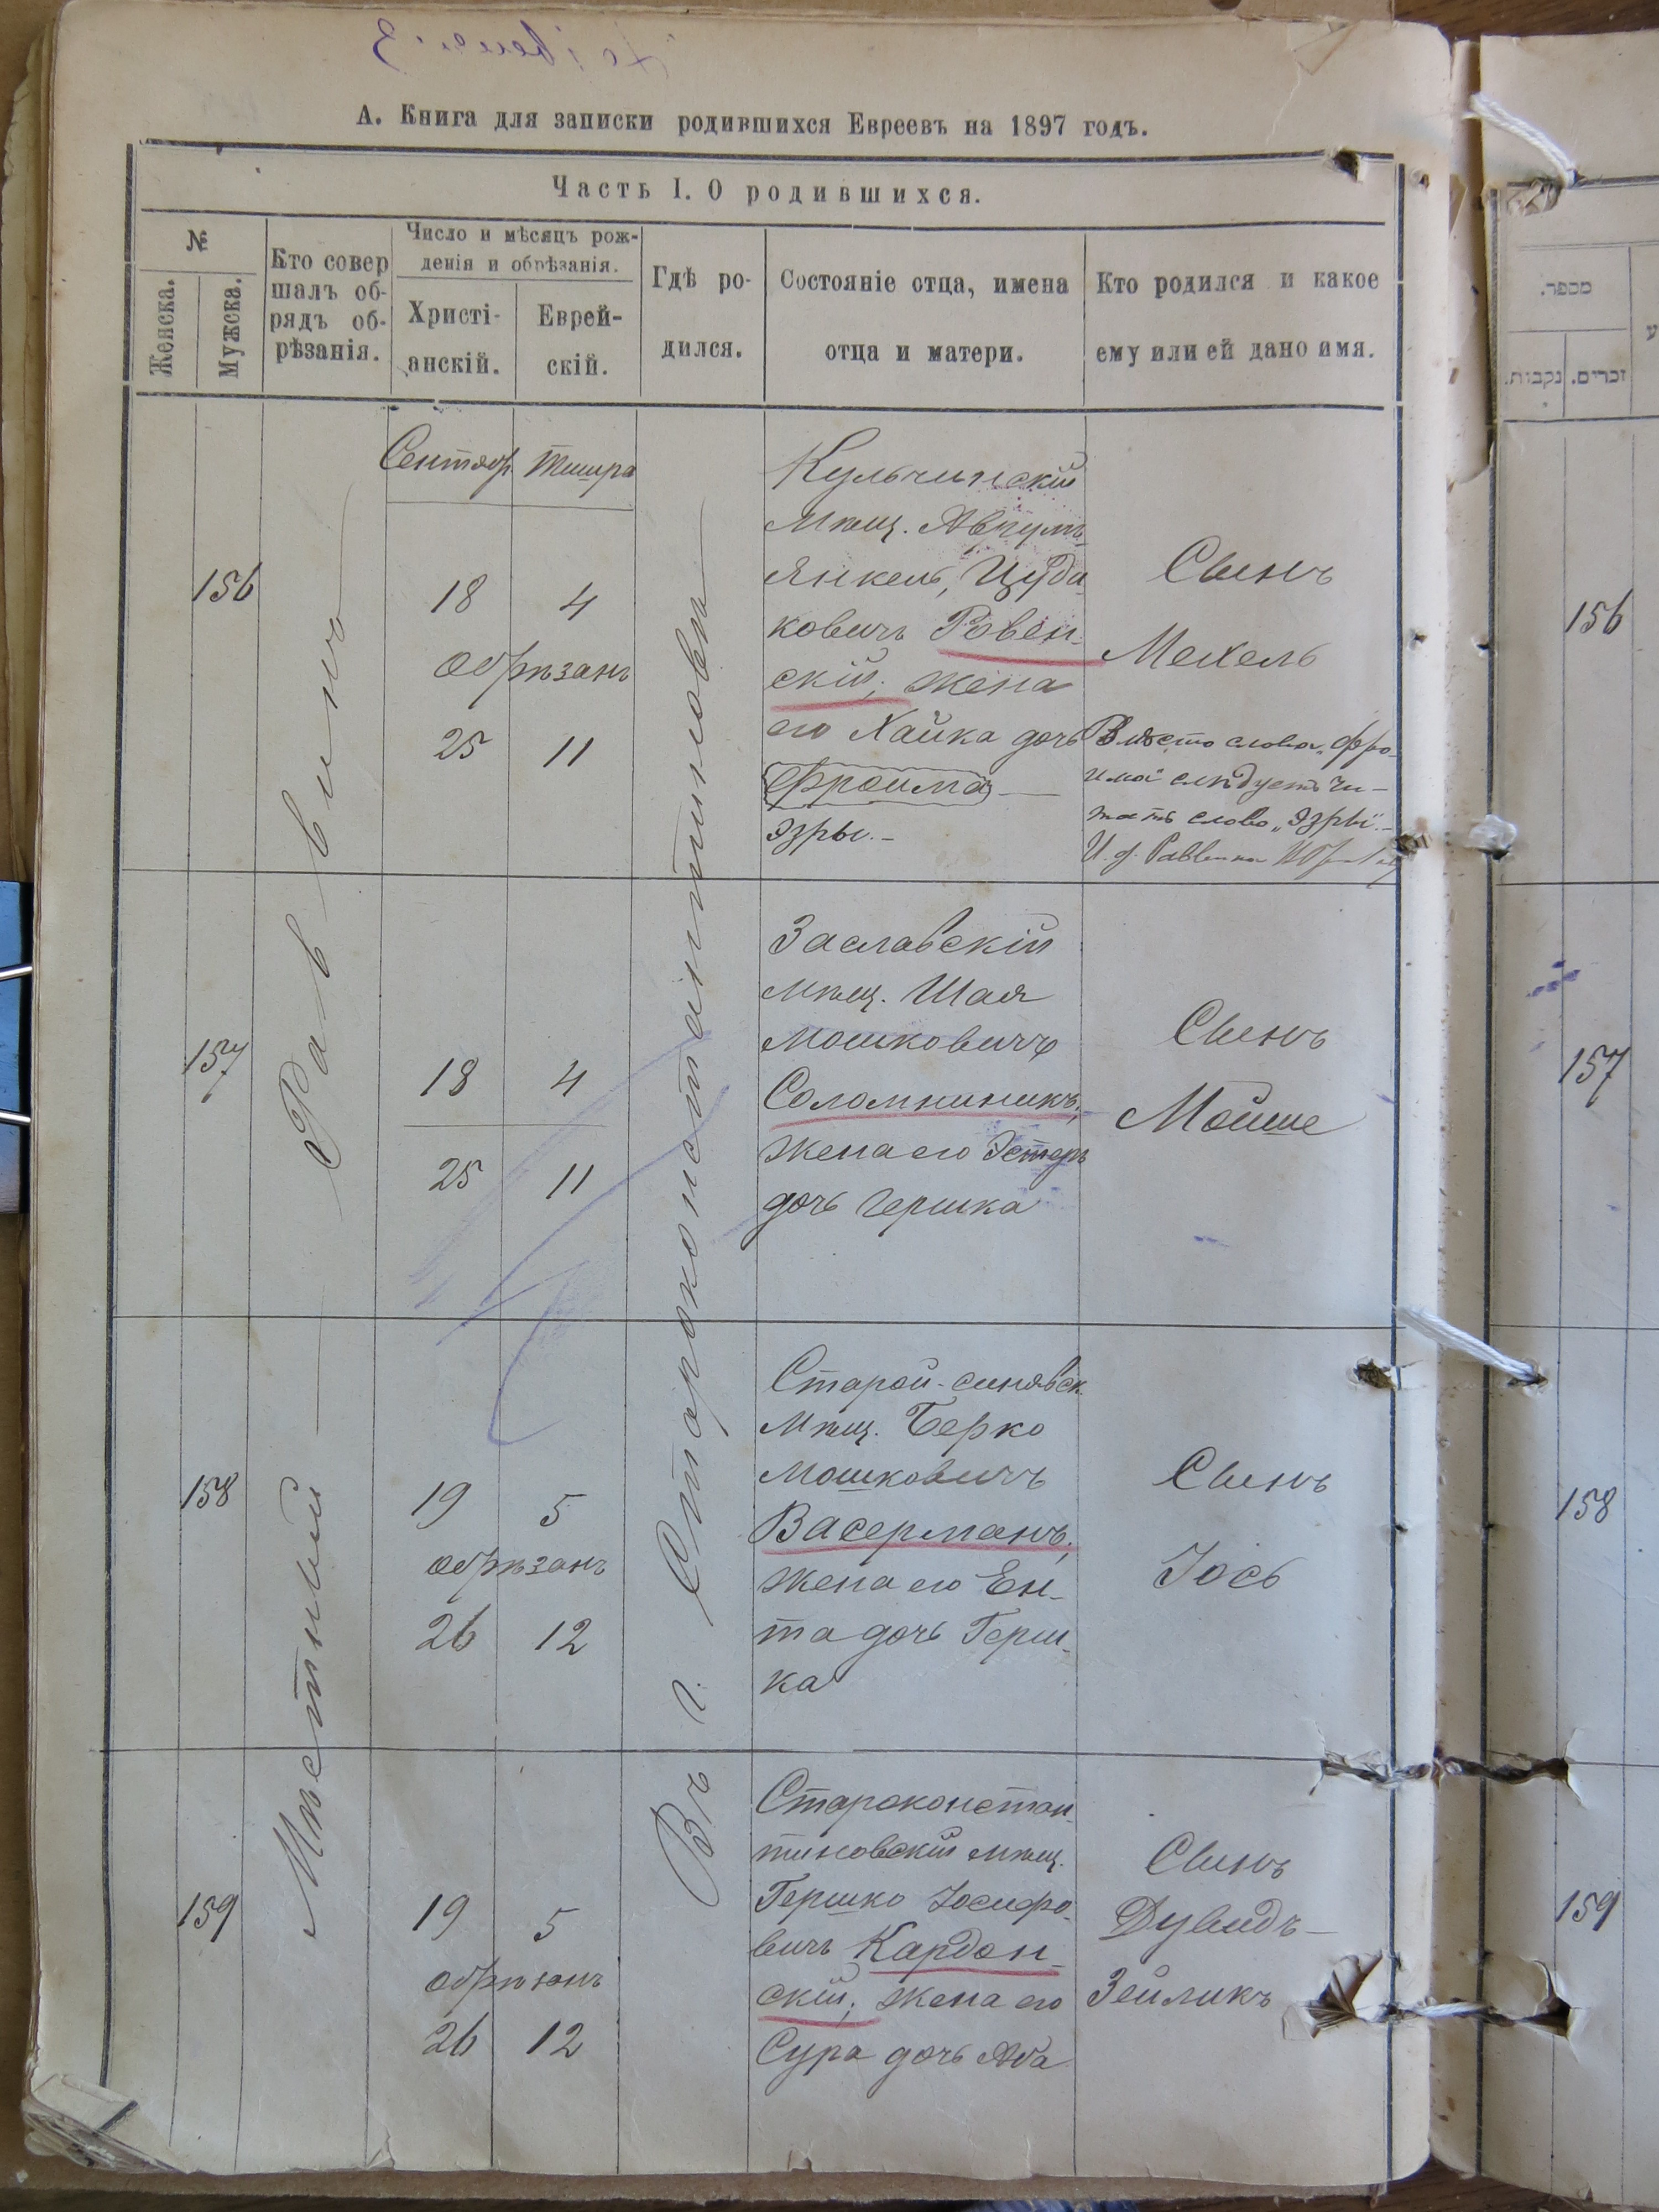 А. Книга для записки родившихся Евреевъ на 1897 годъ.
Часть I. О родившихся.
№
Женска.
Мужска.
Кто совер
шалъ об-
рядъ об-
рѣзанія.
Число и мѣсяцъ рож-
денія и обрѣзанія.
Христі-
анскій.
Еврей-
скій.
Гдѣ ро-
дился.
Состояніе отца, имена
отца и матери.
Кто родился и какое
ему или ей дано имя.
Мѣстный Раввинъ
Въ г. Староконстантиновѣ
Сентябр Тишра
156
18 4
обрѣзанъ
25 11
Кульчинскій
мѣщ. Аврумъ-
Янкель,
ковичъ Ровен-
скій, жена
его Хайка дочь
Фроима
Эзры.-
Сынъ
Мехель
Вмѣсто слова „Фро-
има" слѣдуетъ чи-
тать слово „Эзры".-
И. д. Раввина
157
18 4
25 11
Заславскій
мѣщ. Шая
Мошковичъ
Соломникъ,
жена его Эстеръ
дочь Гершка
Сынъ
Мойше
158
19 5
обрѣзанъ
26 12
Старой-синявск.
Мѣщ. Берко
Мошковичъ
Васерманъ,
жена его Ен-
та дочь Герш-
ка
Сынъ
Іось
159
19 5
обрѣзанъ
26 12
Староконстан-
тиновскій мѣщ.
Гершко Іосифо-
вичъ Кардон-
скій, жена его
Сура дочь Аба
Сынъ
Дувидъ-
Зейликъ
מספר.
זכרים.
נקבות.
156
157
158
159